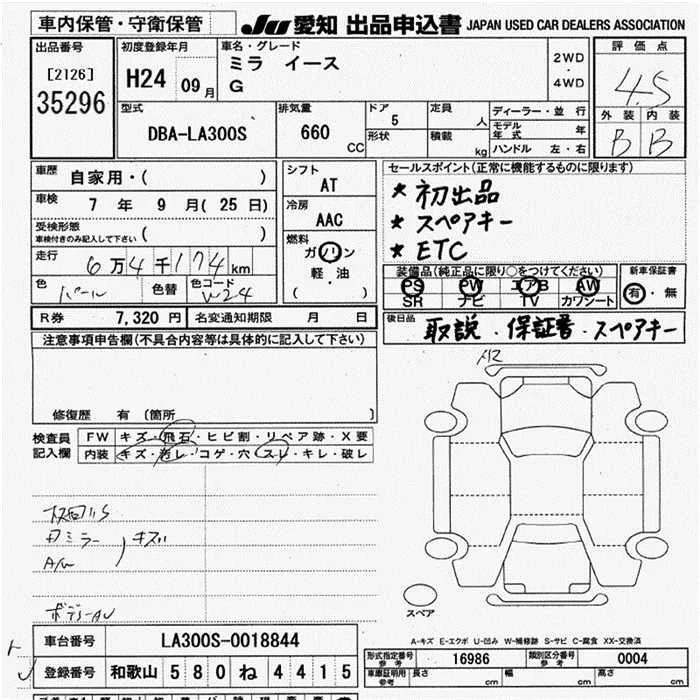 車内保管・守衛保管
JU 愛知 出品申込書 JAPAN USED CAR DEALERS ASSOCIATION
出品番号 [2126] 35296
初度登録年月 H24 09月
車名・グレード ミラ イース G
2WD ・ 4WD
評価点 4.5
外装 内装
B B
型式 DBA-LA300S
排気量 660 CC
ドア 5
形状
定員 人
積載 kg
ディーラー・並行
モデル年式 年
ハンドル 左・右
車歴 自家用・( )
車検 7 年 9 月( 25 日)
受検形態 車検付きのみ記入して下さい ( )
走行 6万4千174km
色 パール 色替 色コード W24
シフト AT
冷房 AAC
燃料 ガソリン
軽・油
( )
セールスポイント(正常に機能するものに限ります)
* 初出品
* スペアキー
* ETC
装備品(純正品に限り○をつけてください)
PS PW エアB AW
SR ナビ TV カワシート
新車保証書
有・無
R券 7,320 円 名変通知期限 月 日
後日品 取説・保証書・スペアキー
注意事項申告欄(不具合内容等は具体的に記入して下さい)
修復歴 有 〔箇所 〕
検査員記入欄
FW キズ・飛石・ヒビ割・リペア跡・X要
内装 キズ・汚レ・コゲ・穴・スレ・キレ・破レ
ミラー キズ
A/W
スペア
A-キズ E-エクボ U-凹み W-補修跡 S-サビ C-腐食 XX-交換済
車台番号 LA300S-0018844
登録番号 和歌山 580 ね 4415
形式指定番号 参考 16986 類別区分番号 参考 0004
車庫証明用 参考 長さ cm 幅 cm 高さ cm